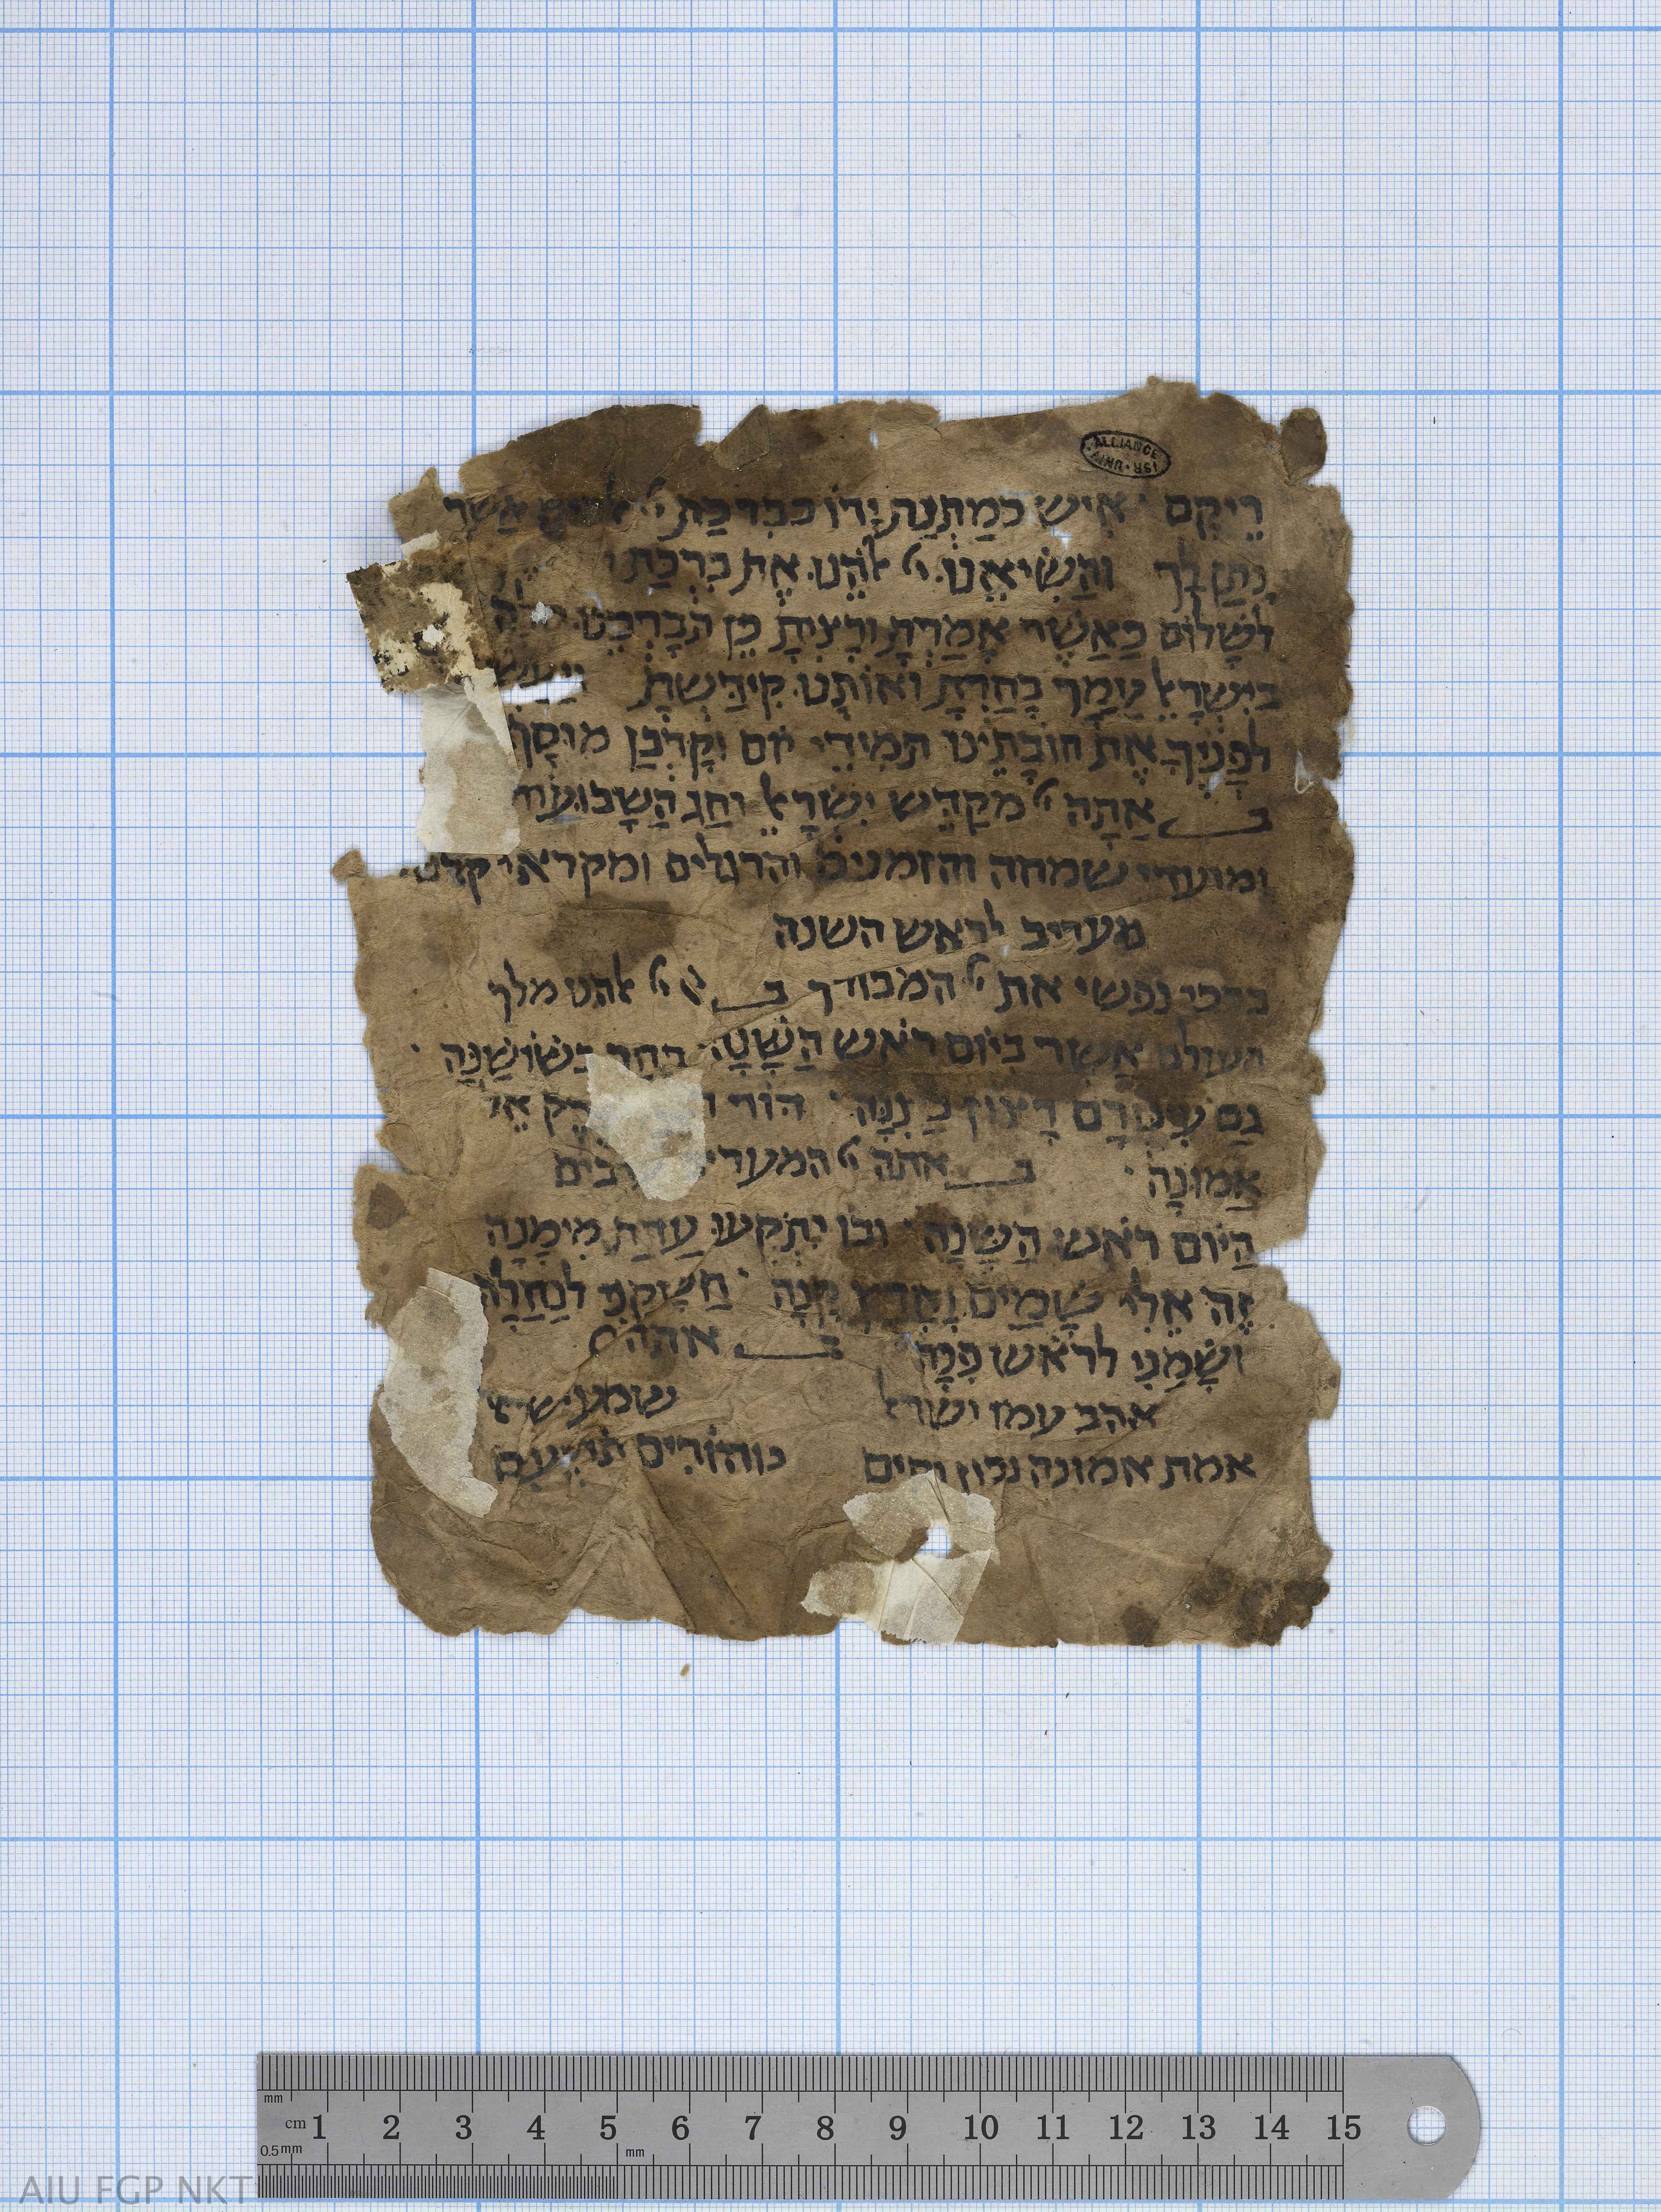 רֵיקָם · אִישׁ כְּמַתְּנַת יָדוֹ כְּבִרְכַּת אשר
נָתַן לָךְ והַשִּׂיאֵנוּ אלהֵינוּ אֶת בִּרְכַּת
לשָׁלוֹם כַּאַשֶׁר אָמַרְתָּ ורָצִיתָ כֵּן תְּבָרְכֵינוּ סלה
בְּיִשְׂרָאֵל עַמָּךְ בָּחַרְתָּ ואוֹתָנוּ קִידַּשְׁתָּ
לפָנֶיךָ אֶת חוֹבָתֵינוּ תְּמִידֵי יוֹם וְקָרְבַּן מוּסָף
ב אַתָּה מְקַדֵּשׁ יִשְׂרָאֵל וחַג הַשָּׁבוּעוֹת
ומועדי שמחה והזמנים והרגלים ומקראי קדש
מעריב לראש השנה
ברכי נפשי את המבורך ב אלהינו מלך
העולם אֲשֶׁר בְּיוֹם רֹאשׁ הַשָּׁנָה בחר כְּשׁוֹשַׁנָּה ·
גַּם רָצוֹן
אֲמוּנָה · ב אתה המעריב ערבים
הַיּוֹם רֹאשׁ הַשָּׁנָה ובו יִתְקְעוּ עֲדַת מִימָנָה
זֶה אֵלִי שָׁמַיִם וָאָרֶץ קָנָה · לְנַחֲלָה
ושָׂמַנִי לרֹאשׁ פִּנָּה ב אתה
אהב עמו ישראל שמע
אמת אמונה נכון וקים
ALLIANCE ISR. UNIV.
mm
cm 1 2 3 4 5 6 7 8 9 10 11 12 13 14 15
0.5mm mm
AIU FGP NKT